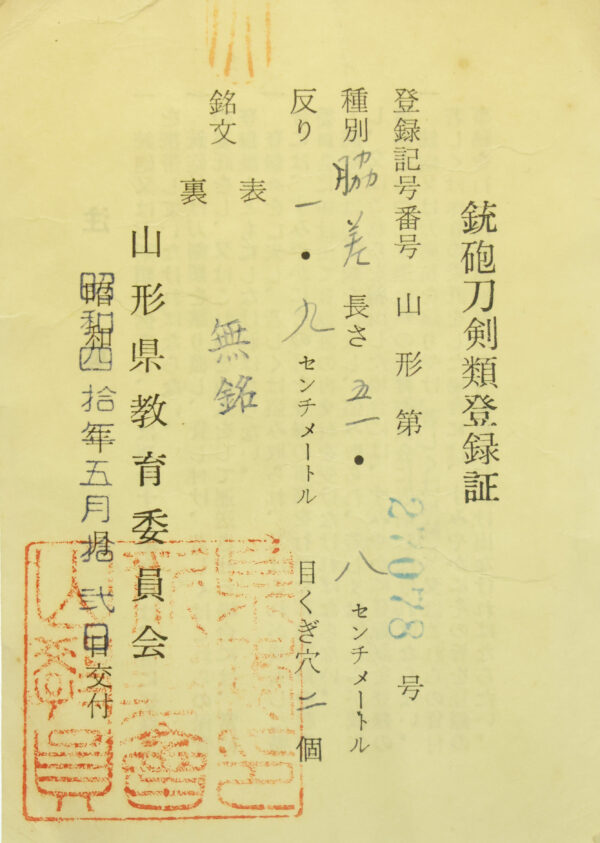 銃砲刀剣類登録証
登録記号番号 山形第 27078 号
種別 脇差 長さ 五一・八 センチメートル
反り 一・九 センチメートル 目くぎ穴 二 個
銘文 表 無銘
裏
山形県教育委員会
昭和四拾年五月拾弐日交付